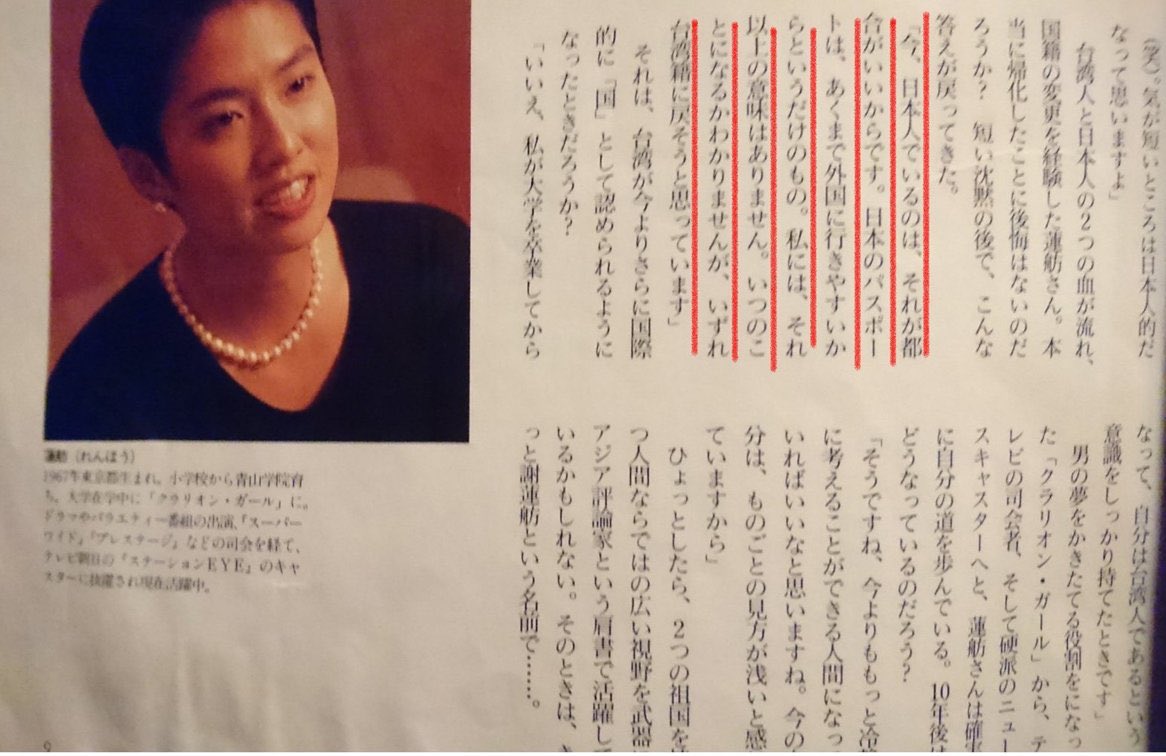 (笑)。気が短いところは日本人的だ
なって思いますよ」
台湾人と日本人の2つの血が流れ、
国籍の変更を経験した蓮舫さん。本
当に帰化したことに後悔はないのだ
ろうか? 短い沈黙の後で、こんな
答えが戻ってきた。
「今、日本人でいるのは、それが都
合がいいからです。日本のパスポー
トは、あくまで外国に行きやすいか
らというだけのもの。私には、それ
以上の意味はありません。いつのこ
とになるかわかりませんが、いずれ
台湾籍に戻そうと思っています」
それは、台湾が今よりさらに国際
的に「国」として認められるように
なったときだろうか?
「いいえ、私が大学を卒業してから
なって、自分は台湾人であるという
意識をしっかり持てたときです」
男の夢をかきたてる役割をになっ
た「クラリオン・ガール」から、テ
レビの司会者、そして硬派のニュー
スキャスターへと、蓮舫さんは確実
に自分の道を歩んでいる。10年後は
どうなっているのだろう?
「そうですね、今よりももっと冷
に考えることができる人間になっ
いればいいなと思いますね。今の
分は、ものごとの見方が浅いと感
ていますから」
ひょっとしたら、2つの祖国を
つ人間ならではの広い視野を武器
アジア評論家という肩書で活躍し
いるかもしれない。そのときは、
っと謝蓮舫という名前で……。
蓮舫(れんほう)
1967年東京都生まれ。小学校から青山学院育
ち。大学在学中に「クラリオン・ガール」に。
ドラマやバラエティー番組の出演、「スーパー
ワイド」「プレステージ」などの司会を経て、
テレビ朝日の「ステーションEYE」のキャ
スターに抜擢され現在活躍中。
9